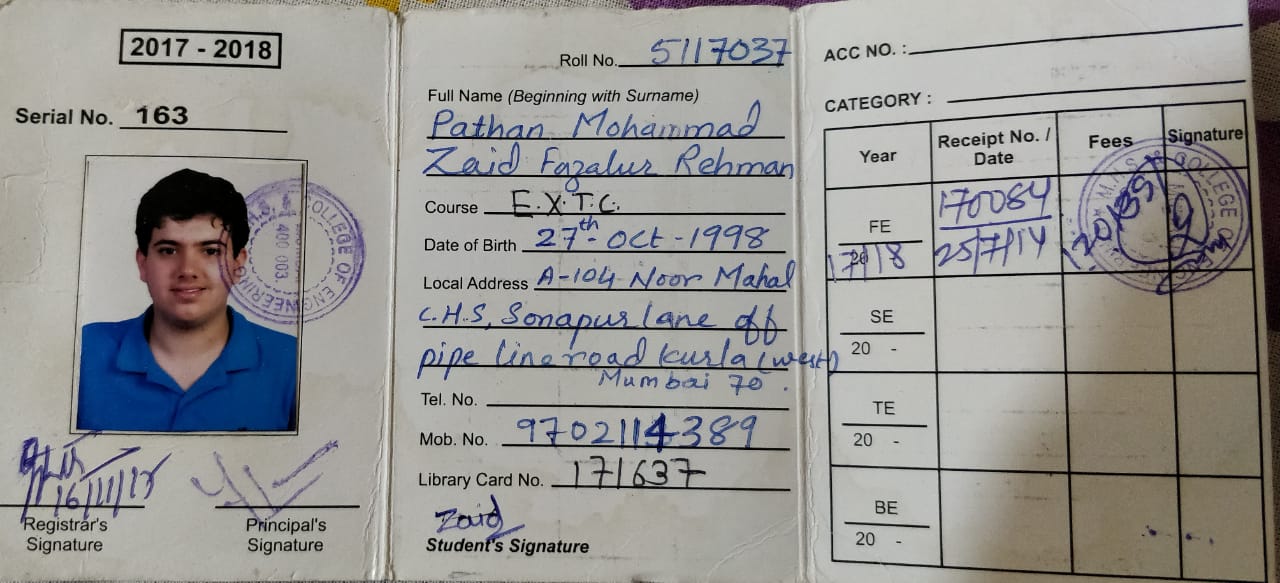 2017 - 2018
Serial No. 163
COLLEGE OF ENGINEERING
400 003
16/11/17
Registrar's
Signature
Principal's
Signature
Roll No. 5117037
Full Name (Beginning with Surname)
Pathan Mohammad
Zaid Fazalur Rehman
Course E.X.T.C.
Date of Birth 27th - Oct - 1998
Local Address A-104 Noor Mahal
C.H.S, Sonapur lane off
pipe line road Kurla (west)
Mumbai 70.
Tel. No.
Mob. No. 9702114389
Library Card No. 171637
Zaid
Student's Signature
ACC NO. :
CATEGORY :
Year Receipt No. / Date Fees Signature
FE 170084
17/18 25/7/17
COLLEGE
SE
20 -
TE
20 -
BE
20 -